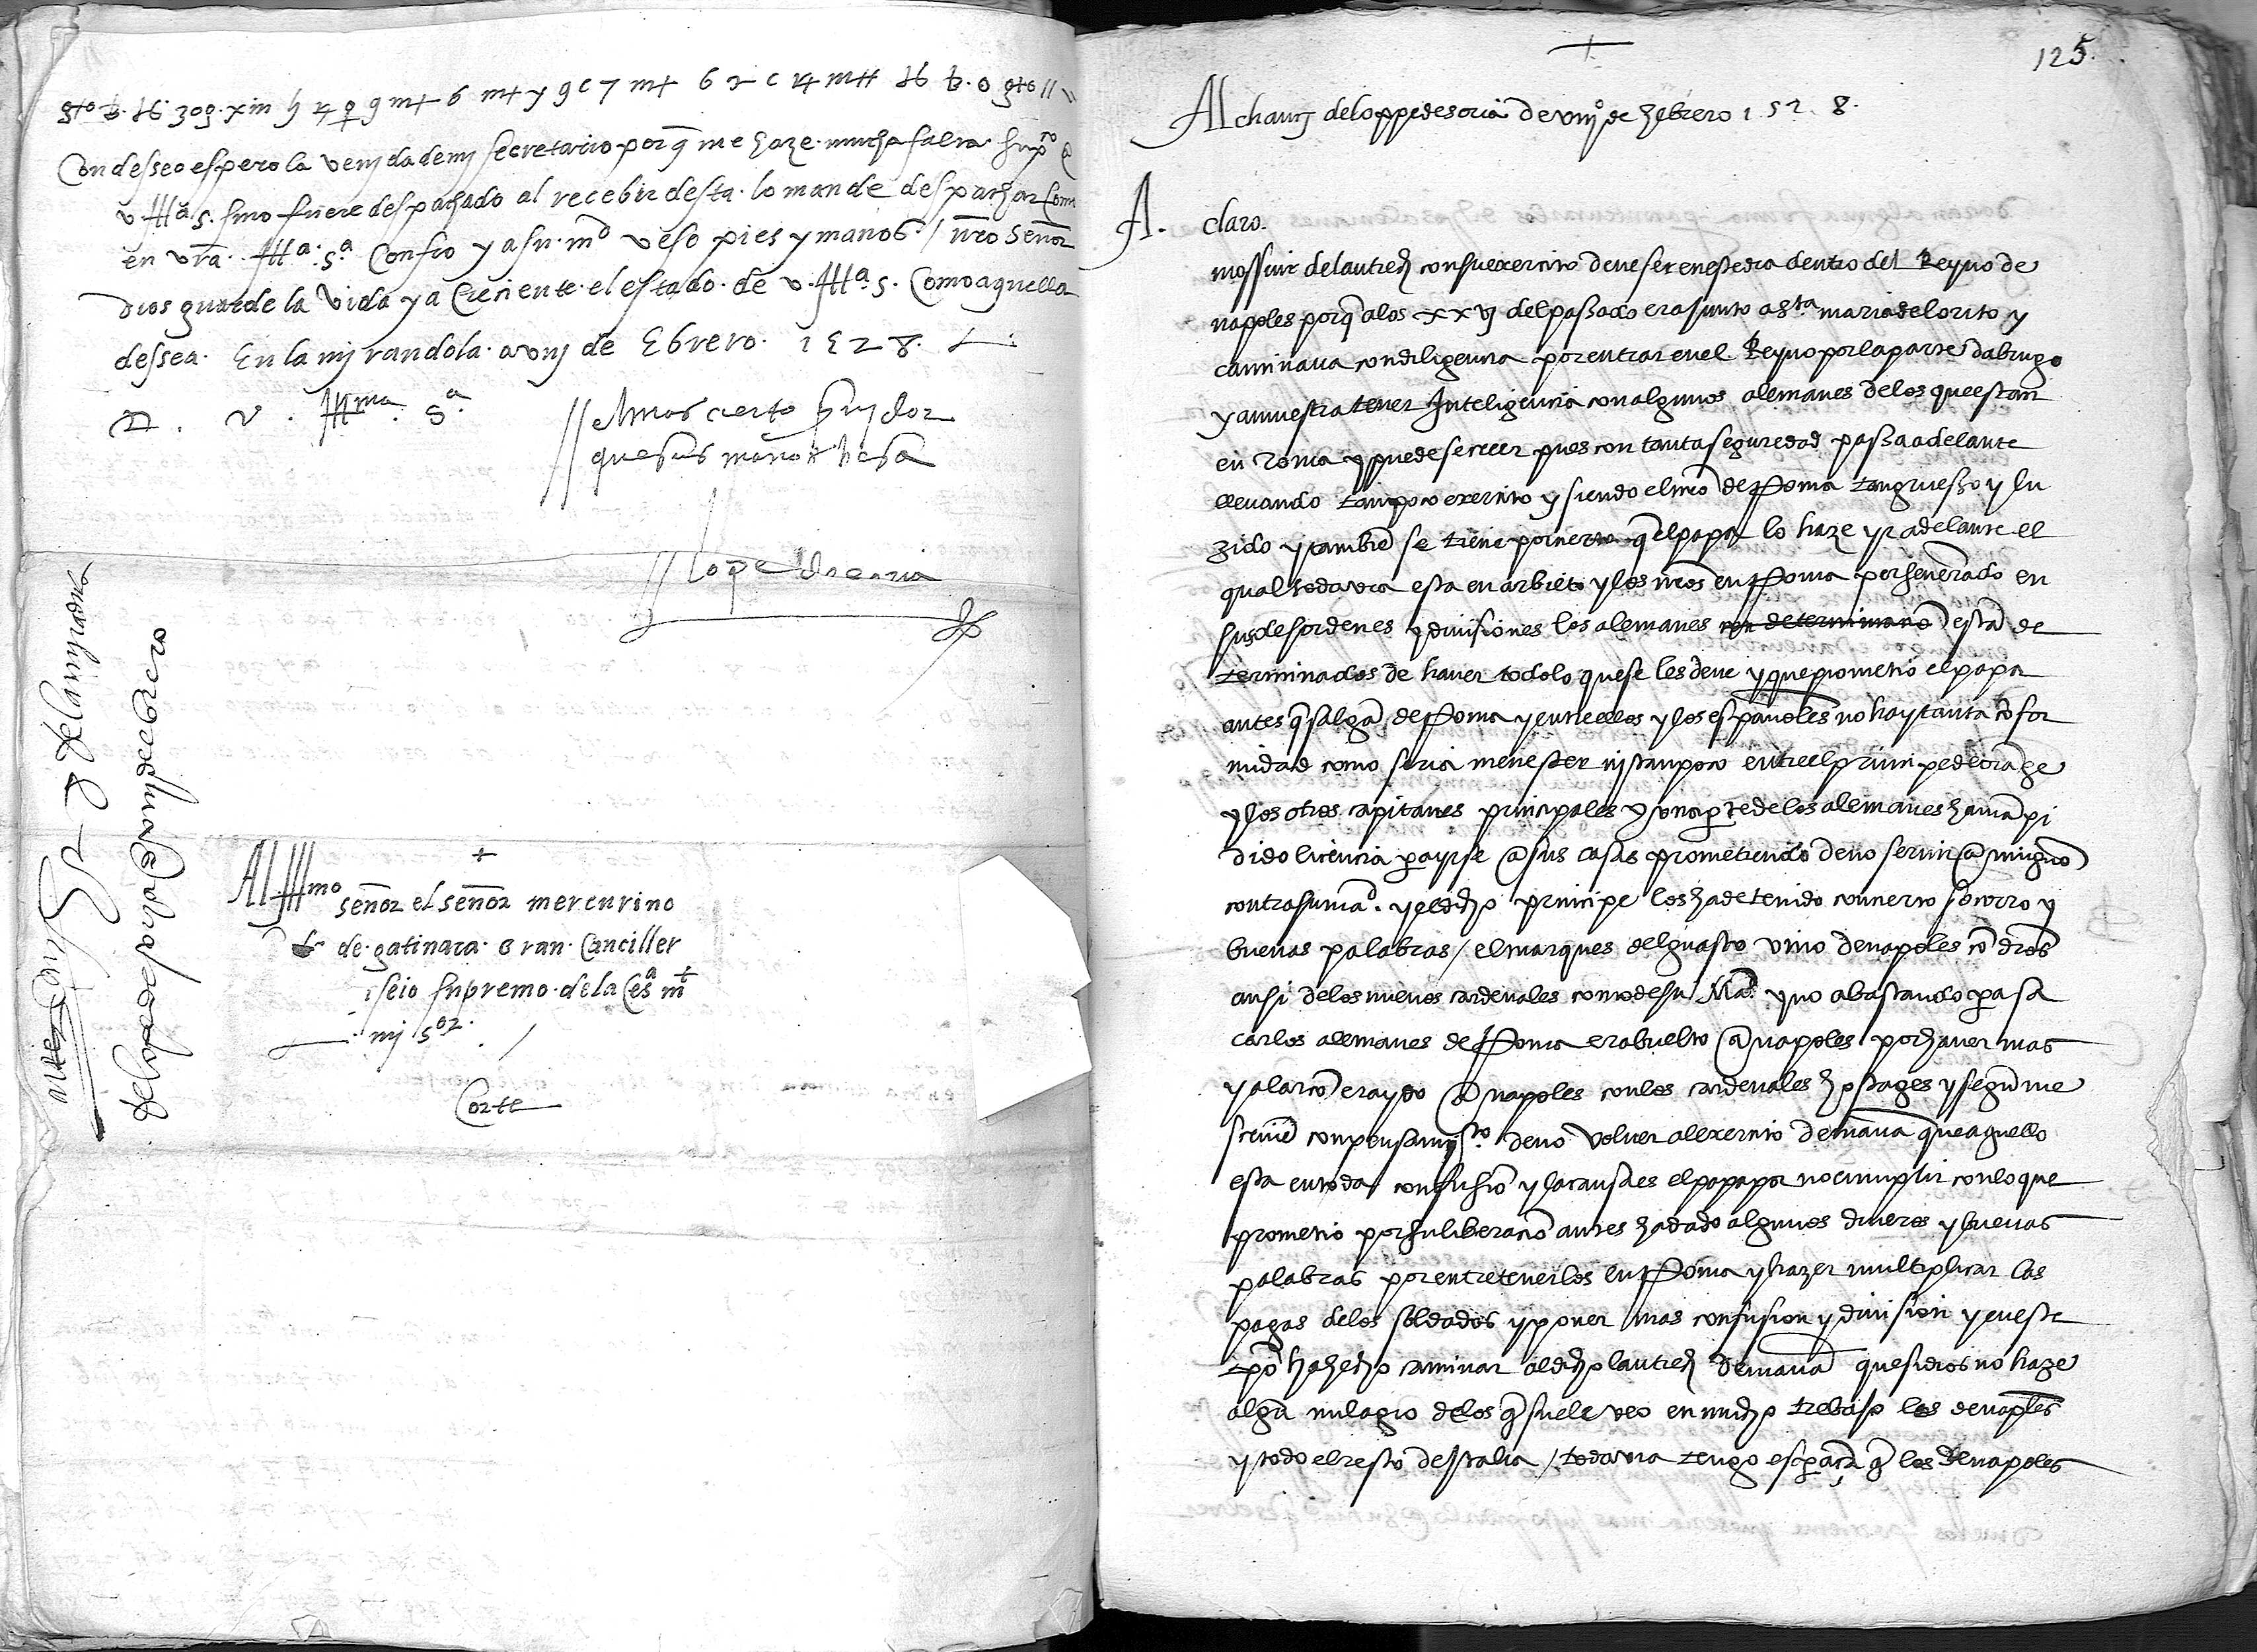 Con desseo espero la venjda de mj secretario porq̃ me haze mucha falta sup.co a
v. Illa. s. sino fuere despachado al recebir desta. lo mande despachar Com̃
en vr̃a. Illa. s.a Confio y a su. m.d veso pies y manos. / nr̃o Señor
Dios guarde la vida y a Creciente. el estado. de v. Illa. s. Como aquella
dessea. En la mjrandola. a viij de Ebrero. 1528.
D. v. Illma. s.a
// el mas cierto serujdor
que sus manos besa
// Lope de soria
de la mjrandula
de lope de soria a ocho de ebrero
+
Al Illmo
señor el señor mercurino
de. gatinara. Gran. Canciller
seio supremo. de la Ces.a m.t
mj s.or
Corte
+
125.
Al chanc̃ de loppe de soria de viijº de hebrero 1528.
A. claro.
mossiur de lautrech con su exercito deue ser en este dia dentro del Reyno de
napoles porq̃ a los xxvj del passado era junto a s.ta maria de lorito y
caminaua con diligencia por entrar en el Reyno por la parte dabruzo
y amuestra tener Inteligencia con algunos alemanes de los que estan
en Roma y puede se creer pues con tanta seguredad passa adelante
lleuando tan poco exercito y siendo el nr̃o de Roma tan gruesso y lu
zido y tambiẽ se tiene por cierto q̃ el papa lo haze yr adelante el
qual todavia esta en orbieto y los nr̃os en Roma perseuerãdo en
sus desordenes y diuisiones los alemanes determinanõ estã de
terminados de hauer todo lo que se les deue y que prometio el papa
antes q̃ salgã de Roma y entre ellos y los españoles no hay tanta cõfor
midad como seria menester nj tanpoco entre el principe de orãge
y los otros capitanes principales y vna pte de los alemanes hauiã pi
dido licencia pa yrse a sus casas prometiendo de no seruir a ningũo
contra su ma.d y el dicho principe los ha detenido con cierto socorro y
buenas palabras / el marques del guasto vino de napoles cõ drõs
ansi de los nueuos cardenales como de su Ma.d y no abastando pa sa
car los alemanes de Roma era buelto a napoles por hauer mas
y alarcõ era ydo a napoles con los cardenales hostages y segũ me
scriuẽ con pensamj.to de no voluer al exercito de manã que aquello
esta en toda confusiõ y la causa es el papa por no cumplir con lo que
prometio por su liberaciõ antes ha dado algunos dineros y buenas
palabras por entretenerlos en Roma y hazer multiplicar las
pagas de los soldados y poner mas confusion y diuision y en este
tpõ ha hecho caminar al dicho lautrech de manã que si dios no haze
algũ milagro de los q̃ suele veo en mucho trebajo los de napoles
y todo el resto de Italia / todavia tengo espãrça q̃ los de napoles